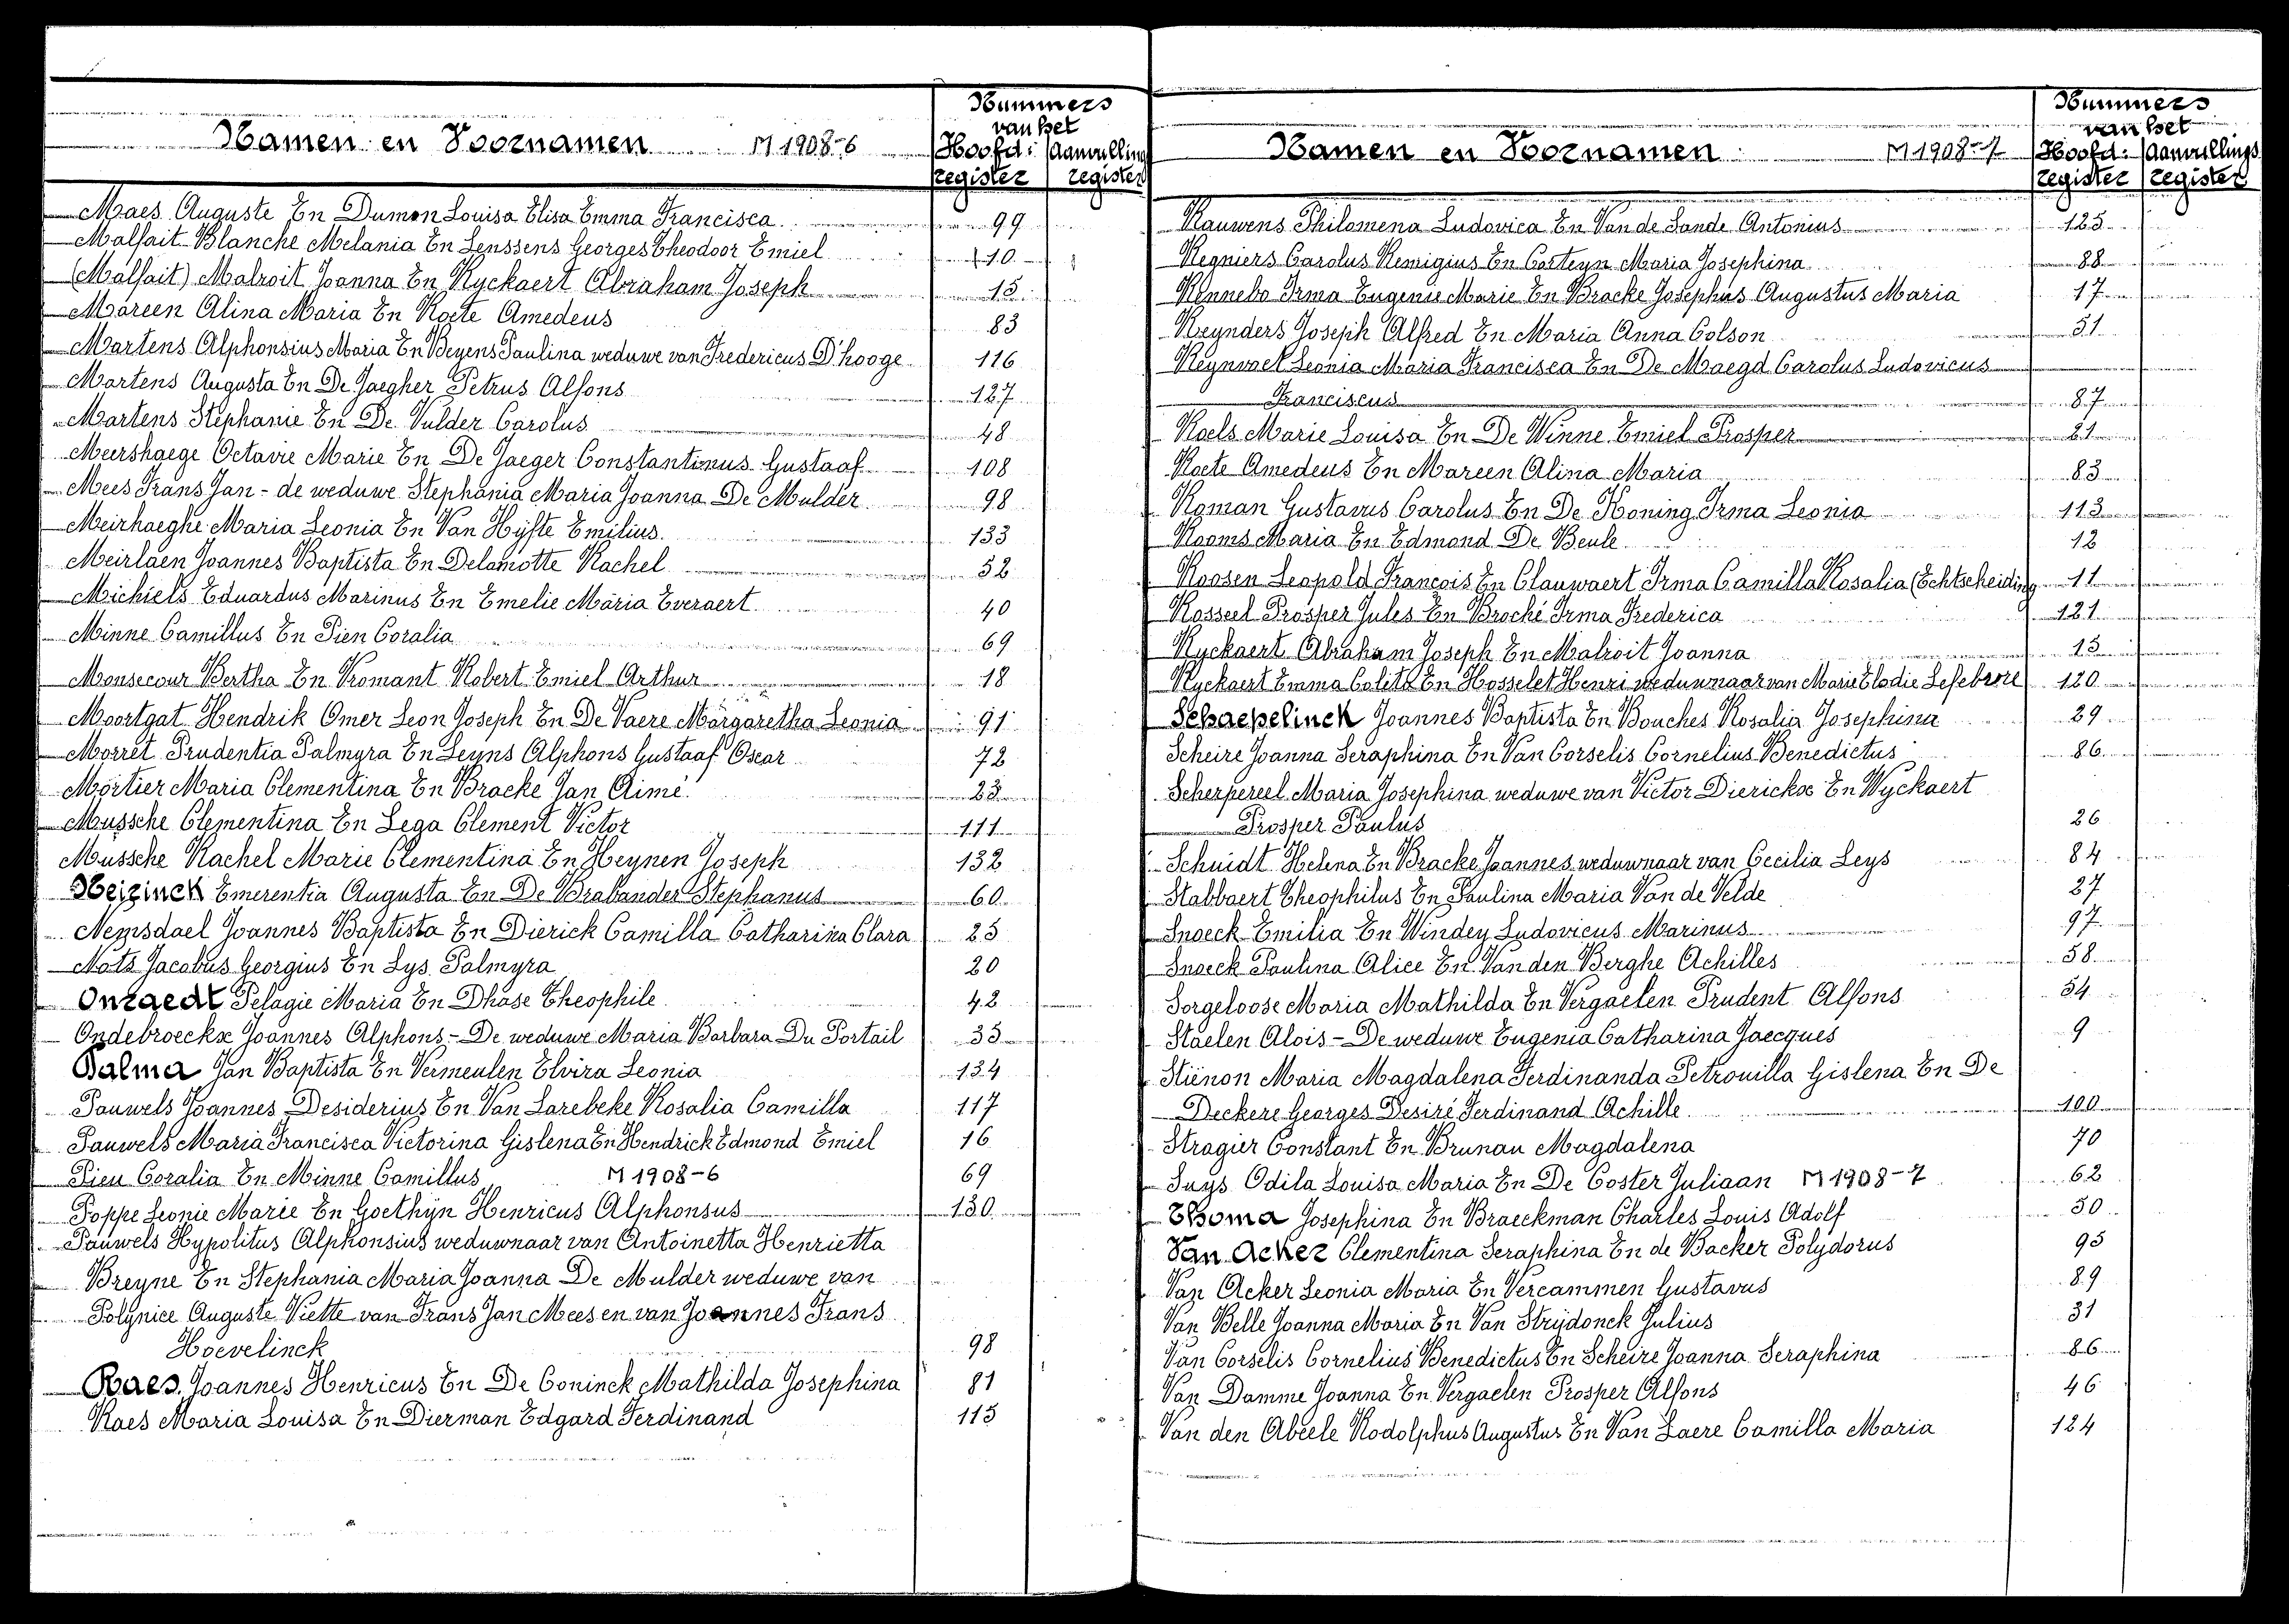 Namen en Voornamen M 1908-6
Nummers
van het
Hoofd: Aanvulling
register register
Maes Auguste En Dumon Louisa Elisa Emma Francisca 99
Malfait Blanche Melania En Lenssens Georges Theodoor Emiel 10
(Malfait) Malroit Joanna En Ryckaert Abraham Joseph 15
Mareen Alina Maria En Roete Amedeus 83
Martens Alphonsius Maria En Beyens Paulina weduwe van Fredericus D'hooge 116
Martens Augusta En De Jaegher Petrus Alfons 127
Martens Stephanie En De Vulder Carolus 48
Meershaege Octavie Marie En De Jaeger Constantinus Gustaaf 108
Mees Frans Jan - de weduwe Stephania Maria Joanna De Mulder 98
Meirhaeghe Maria Leonia En Van Hyfte Emilius. 133
Meirlaen Joannes Baptista En Delamotte Rachel 52
Michiels Eduardus Marinus En Emelie Maria Everaert 40
Minne Camillus En Pien Coralia 69
Monsecour Bertha En Vromant Robert Emiel Arthur 18
Moortgat Hendrik Omer Leon Joseph En De Vaere Margaretha Leonia 91
Morret Prudentia Palmyra En Leyns Alphons Gustaaf Oscar 72
Mortier Maria Clementina En Bracke Jan Aimé 23
Mussche Clementina En Lega Clement Victor 111
Mussche Rachel Marie Clementina En Heynen Joseph 132
Neirinck Emerentia Augusta En De Brabander Stephanus 60
Nemsdael Joannes Baptista En Dierick Camilla Catharina Clara 25
Nots Jacobus Georgius En Lys Palmyra 20
Onraedt Pelagie Maria En Dhase Theophile 42
Ondebroeckx Joannes Alphons - De weduwe Maria Barbara Du Portail 35
Palma Jan Baptista En Vermeulen Elvira Leonia 134
Pauwels Joannes Desiderius En Van Larebeke Rosalia Camilla 117
Pauwels Maria Francisca Victorina Gislena En Hendrick Edmond Emiel 16
Pien Coralia En Minne Camillus M 1908-6 69
Poppe Leonie Marie En Goethijn Henricus Alphonsus 130
Pauwels Hypolitus Alphonsius weduwnaar van Antoinetta Henrietta
Breyne En Stephania Maria Joanna De Mulder weduwe van
Polynice Auguste Viette van Frans Jan Mees en van Joannes Frans
Hoevelinck 98
Raes Joannes Henricus En De Coninck Mathilda Josephina 81
Raes Maria Louisa En Dierman Edgard Ferdinand 115
Namen en Voornamen M 1908-7
Nummers
van het
Hoofd: Aanvullings
register register
Rauwens Philomena Ludovica En Van de Sande Antonius 125
Regniers Carolus Remigius En Corteyn Maria Josephina 88
Rennebo Irma Eugenie Marie En Bracke Josephus Augustus Maria 17
Reynders Joseph Alfred En Maria Anna Colson 51
Reynvoet Leonia Maria Francisca En De Maegd Carolus Ludovicus
Franciscus 87
Roels Marie Louisa En De Winne Emiel Prosper 21
Roete Amedeus En Mareen Alina Maria 83
Roman Gustavus Carolus En De Koning Irma Leonia 113
Rooms Maria En Edmond De Beule 12
Roosen Leopold Francois En Clauwaert Irma Camilla Rosalia (Echtscheiding 11
Rosseel Prosper Jules En Broché Irma Frederica 121
Ryckaert Abraham Joseph En Malroit Joanna 15
Ryckaert Emma Coleta En Hosselet Henri weduwnaar van Marie Elodie Lefebvre 120
Schaepelinck Joannes Baptista En Bouches Rosalia Josephina 29
Scheire Joanna Seraphina En Van Corselis Cornelius Benedictus 86
Scherpereel Maria Josephina weduwe van Victor Dierickx En Wyckaert
Prosper Paulus 26
Schmidt Helena En Bracke Joannes weduwnaar van Cecilia Leys 84
Slabbaert Theophilus En Paulina Maria Van de Velde 27
Snoeck Emilia En Windey Ludovicus Marinus 97
Snoeck Paulina Alice En Van den Berghe Achilles 58
Sorgeloose Maria Mathilda En Vergaelen Prudent Alfons 54
Staelen Alois - De weduwe Eugenia Catharina Jaecques 9
Stiénon Maria Magdalena Ferdinanda Petronilla Gislena En De
Deckere Georges Desiré Ferdinand Achille 100
Stragier Constant En Brunau Magdalena 70
Suys Odila Louisa Maria En De Coster Juliaan M 1908-7 62
Thoma Josephina En Braeckman Charles Louis Adolf 50
Van Acker Clementina Seraphina En de Backer Polydorus 95
Van Acker Leonia Maria En Vercammen Gustavus 89
Van Belle Joanna Maria En Van Strijdonck Julius 31
Van Corselis Cornelius Benedictus En Scheire Joanna Seraphina 86
Van Damme Joanna En Vergaelen Prosper Alfons 46
Van den Abeele Rodolphus Augustus En Van Laere Camilla Maria 124